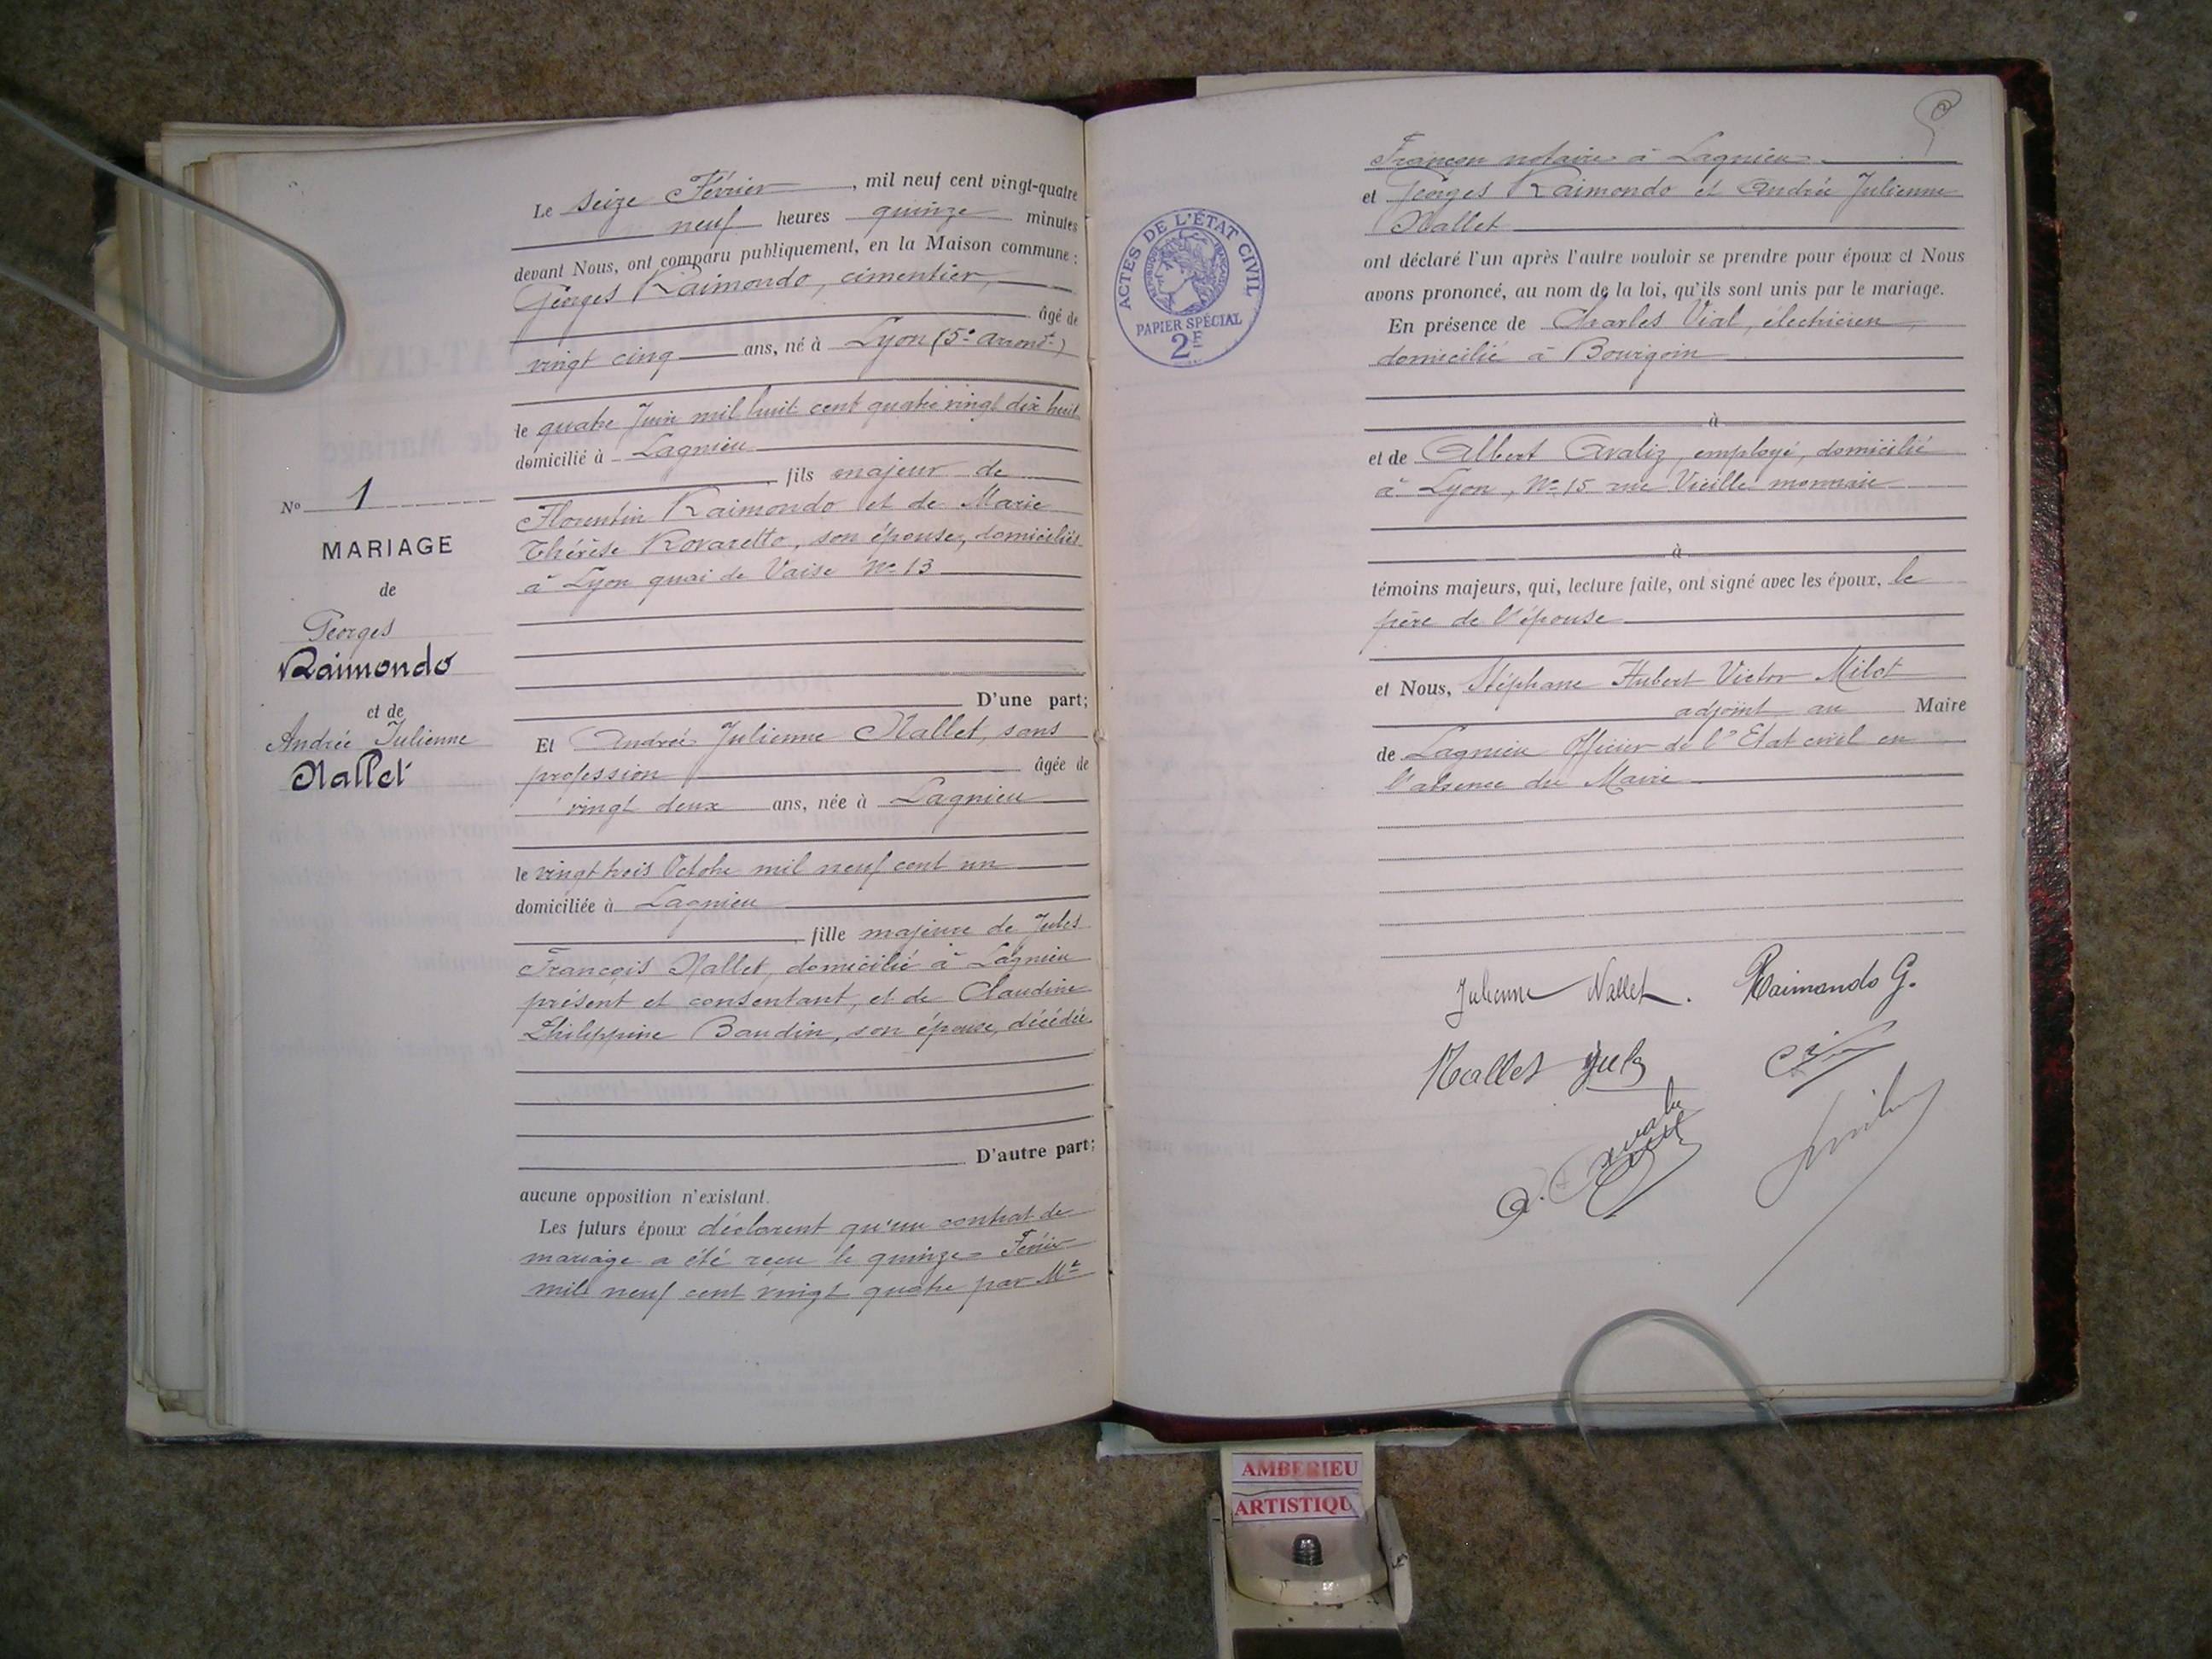 Le seize Février, mil neuf cent vingt-quatre
neuf heures quinze minutes
devant Nous, ont comparu publiquement, en la Maison commune :
Georges Raimondo, cimentier,
âgé de
vingt cinq ans, né à Lyon (5e arront)
le quatre Juin mil huit cent quatre vingt dix huit
domicilié à Lagnieu
fils majeur de
Florentin Raimondo et de Marie
Thérèse Rovaretto, son épouse, domiciliés
à Lyon quai de Vaise No 13
D'une part;
Et Andrée Julienne Nallet, sans
profession âgée de
vingt deux ans, née à Lagnieu
le vingt trois Octobre mil neuf cent un
domiciliée à Lagnieu
fille majeure de Jules
François Nallet, domicilié à Lagnieu
présent et consentant, et de Claudine
Philippine Baudin, son épouse, décédée
D'autre part;
aucune opposition n'existant.
Les futurs époux déclarent qu'un contrat de
mariage a été reçu le quinze Février
mil neuf cent vingt quatre par Me
No 1
MARIAGE
de
Georges
Raimondo
et de
Andrée Julienne
Nallet
ACTES DE L'ÉTAT CIVIL
RÉPUBLIQUE FRANÇAISE
PAPIER SPÉCIAL
2F
Françon notaire à Lagnieu
et Georges Raimondo et Andrée Julienne
Nallet
ont déclaré l'un après l'autre vouloir se prendre pour époux et Nous
avons prononcé, au nom de la loi, qu'ils sont unis par le mariage.
En présence de Charles Vial, électricien,
domicilié à Bourgoin
à
et de Albert Avaliz, employé, domicilié
à Lyon, No 15 rue Vieille monnaie
à
témoins majeurs, qui, lecture faite, ont signé avec les époux, le
père de l'épouse
et Nous, Stéphane Hubert Victor Milot
adjoint au Maire
de Lagnieu Officier de l'Etat civil en
l'absence du Maire
Julienne Nallet. Raimondo G.
Nallet Jules
AMBERIEU
ARTISTIQU